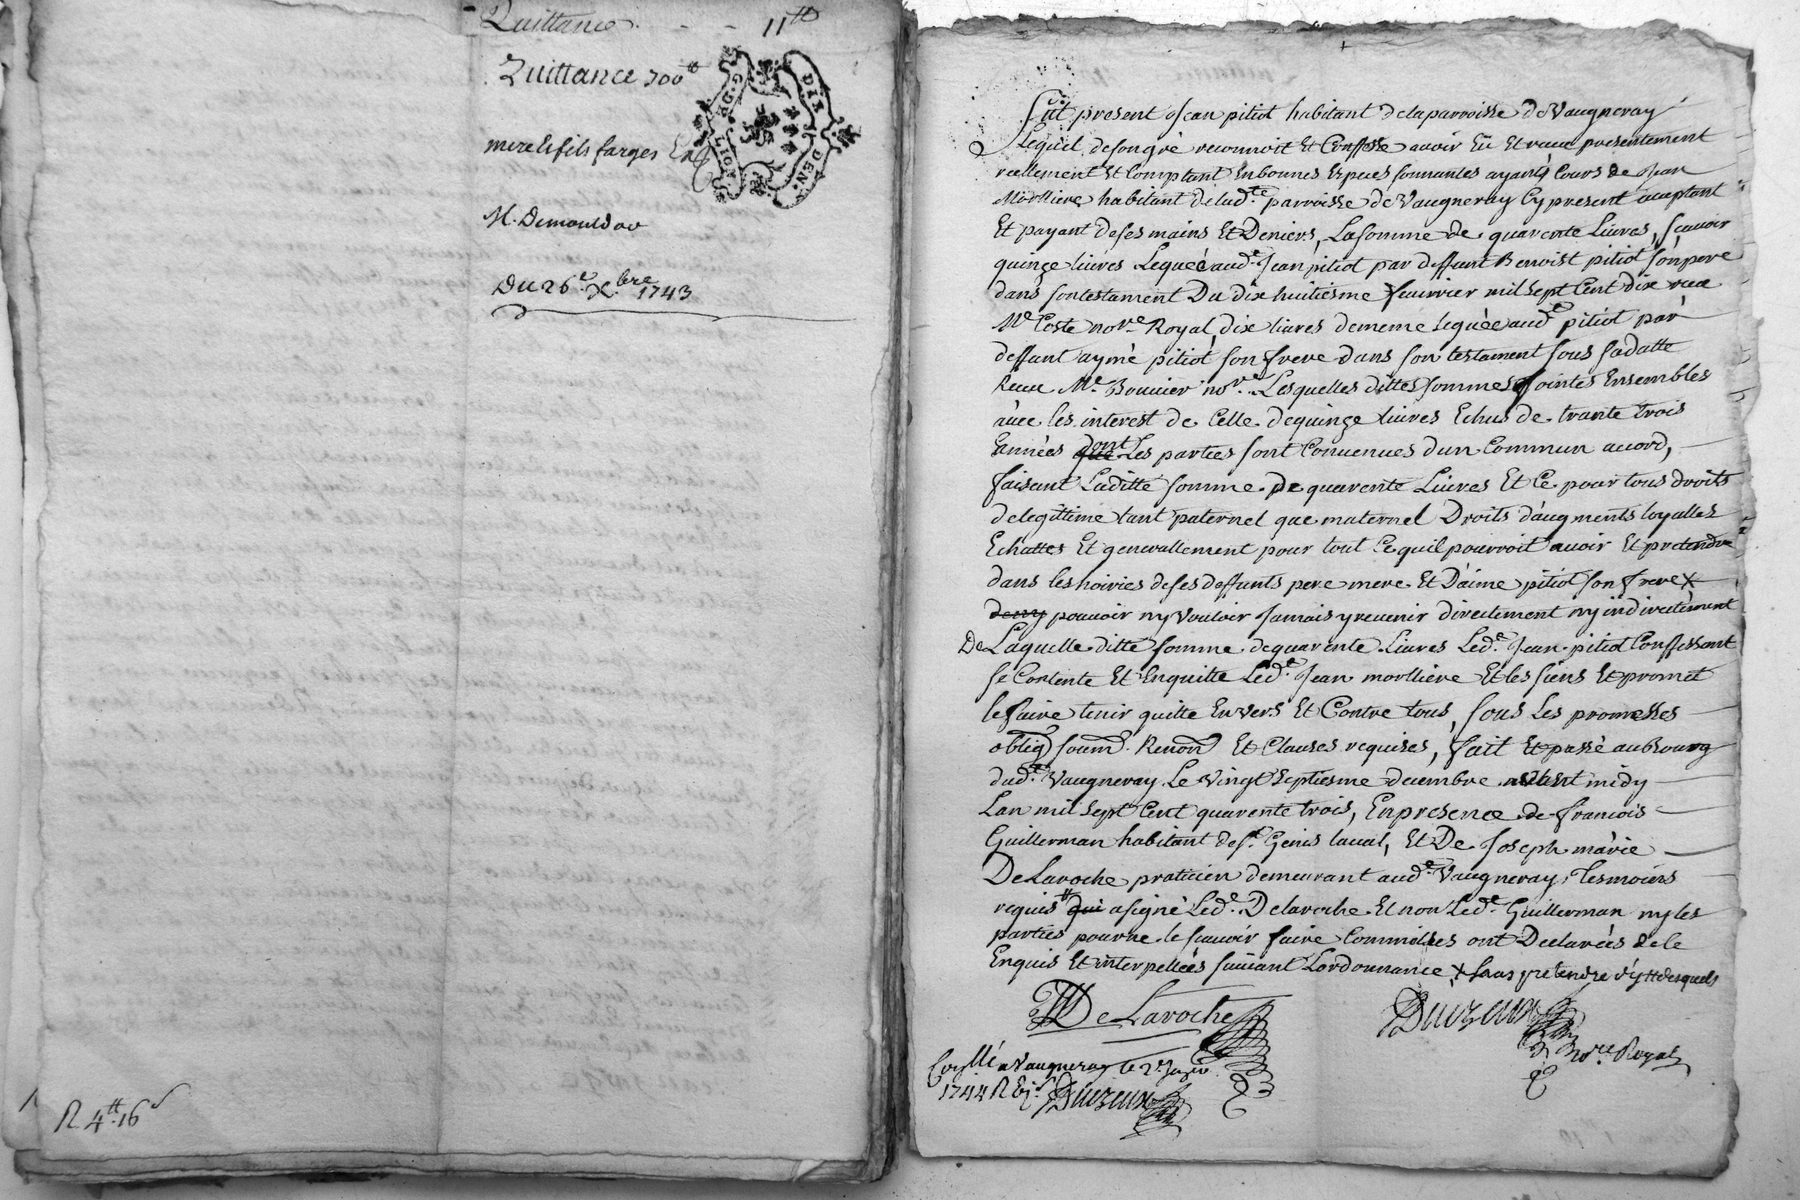 Quittance. 11tt
Quittance 700tt
G. D'. LION
DEN.
mere & fils farges
M. Demouldoo
Du 26e Xbre 1743
R 4tt 16s
Fut present Jean pitiot habitant de la parroisse de Vaugneray
Lequel de son gré reconnoit Et Confesse avoir Eü Et receu presentement
reellement Et Comptant En bonnes Especes sonnantes ayants Cours de Jean
Morlliere habitant de lad.te parroisse de Vaugneray Cy present aceptant
Et payant de ses mains Et Deniers, La somme de quarente Livres, scavoir
quinze livres Leguéé aud.t Jean pitiot par deffunt Benoist pitiot son pere
dans son testament Du dix huitiesme feuvrier mil sept Cent dix receu
Me Coste nore Royal, dix livres de meme leguéé aud.t pitiot par
deffunt aymé pitiot son frere dans son testament sous sa datte
Receu Me Bouvier nore. Lesquelles dittes sommes Jointes Ensembles
avec les interest de Celle de quinze livres Echus de trante trois
Années dont Les parties sont Convenues dun Commun acord,
faisant Laditte somme de quarente Livres Et Ce pour tous droits
de legittime tant paternel que maternel Droits d'augments loyalles
Echuttes Et generallement pour tout Ce quil pourroit avoir Et pretendre
dans les hoiries de ses deffunts pere mere Et D'aimé pitiot son frere x
pouvoir ny vouloir Jamais y revenir directement ny indirectement
De Laquelle ditte somme de quarente Livres Led.t Jean pitiot Confessant
se Contente Et Enquitte Led.t Jean morlliere Et les siens Et promet
le faire tenir quitte Envers Et Contre tous, sous Les promesses
oblig. soum. Renon. Et Clauses requises, fait Et passé au Bourg
dud.t Vaugneray Le vingt septiesme decembre avant midy
Lan mil sept Cent quarente trois, En presence de francois
Guillerman habitant de St Genis laval, Et De Joseph marie
De Laroche praticien demeurant aud.t Vaugneray, tesmoins
requis # a signé Led.t Delaroche Et non Led.t Guillerman ny les
parties pour ne le scavoir faire Comme illes ont Declarées de le
Enquis Et interpellées suivant Lordonnance x sans pretendre d'y # desquels
De Laroche
Duczeux
nore Royal
Conlle a Vaugneray le 2e Janv.
1744 R
Duczeux